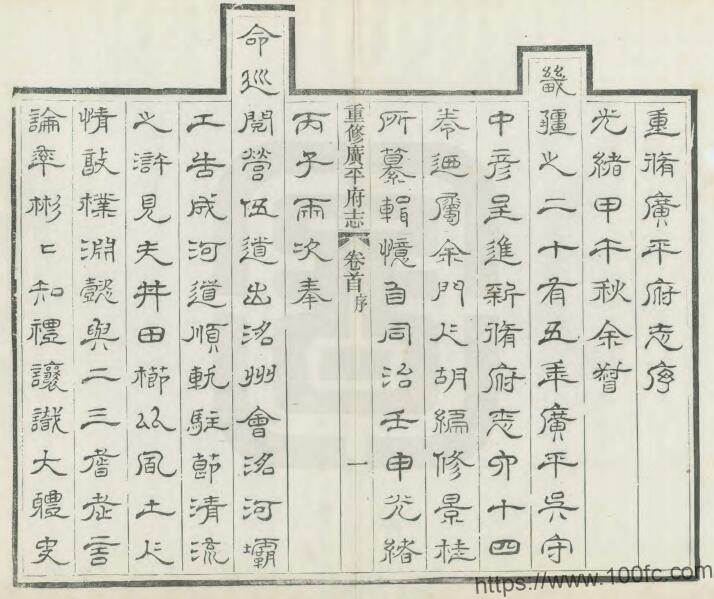 重脩廣平府志序
光緒甲午秋余督
畿疆之二十有五年廣平吳守
中彥呈進新脩府志六十四
卷迺屬余門人胡編修景桂
所纂輯憶自同治壬申光緒
重修廣平府志 卷首 序 一
丙子兩次奉
命巡閱營伍道出洺州會洺河壩
工告成河道順軌駐節清流
之滸見夫井田櫛比風土人
情敦樸淵懿與二三耆老言
論率彬〻知禮讓識大體史
https://www.100fc.com